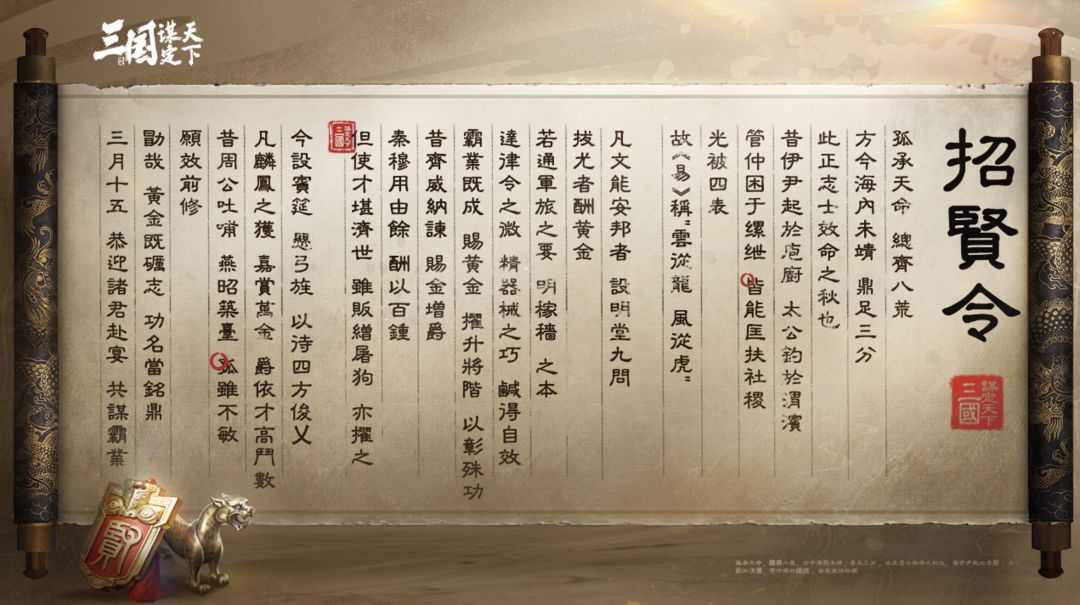 三国 謀定天下
招賢令
三國 謀定天下
孤承天命 總齊八荒
方今海內未靖 鼎足三分
此正志士效命之秋也
昔伊尹起於庖廚 太公釣於渭濱
管仲困于縲绁 皆能匡扶社稷
光被四表
故《易》稱:"雲從龍 風從虎"
凡文能安邦者 設明堂九問
拔尤者酬黃金
若通軍旅之要 明稼穡 之本
達律令之微 精器械之巧 鹹得自效
霸業既成 賜黃金 擢升將階 以彰殊功
昔齊威納諫 賜金增爵
秦穆用由餘 酬以百鍾
但使才堪濟世 雖販繒屠狗 亦擢之
三國 謀定天下
今設賓筵 懸弓旌 以待四方俊乂
凡麟鳳之獲 嘉賞萬金 爵依才高鬥數
昔周公吐哺 燕昭築臺 孤雖不敏
願效前修
勖哉 黃金既礪志 功名當銘鼎
三月十五 恭迎諸君赴宴 共謀霸業
賢